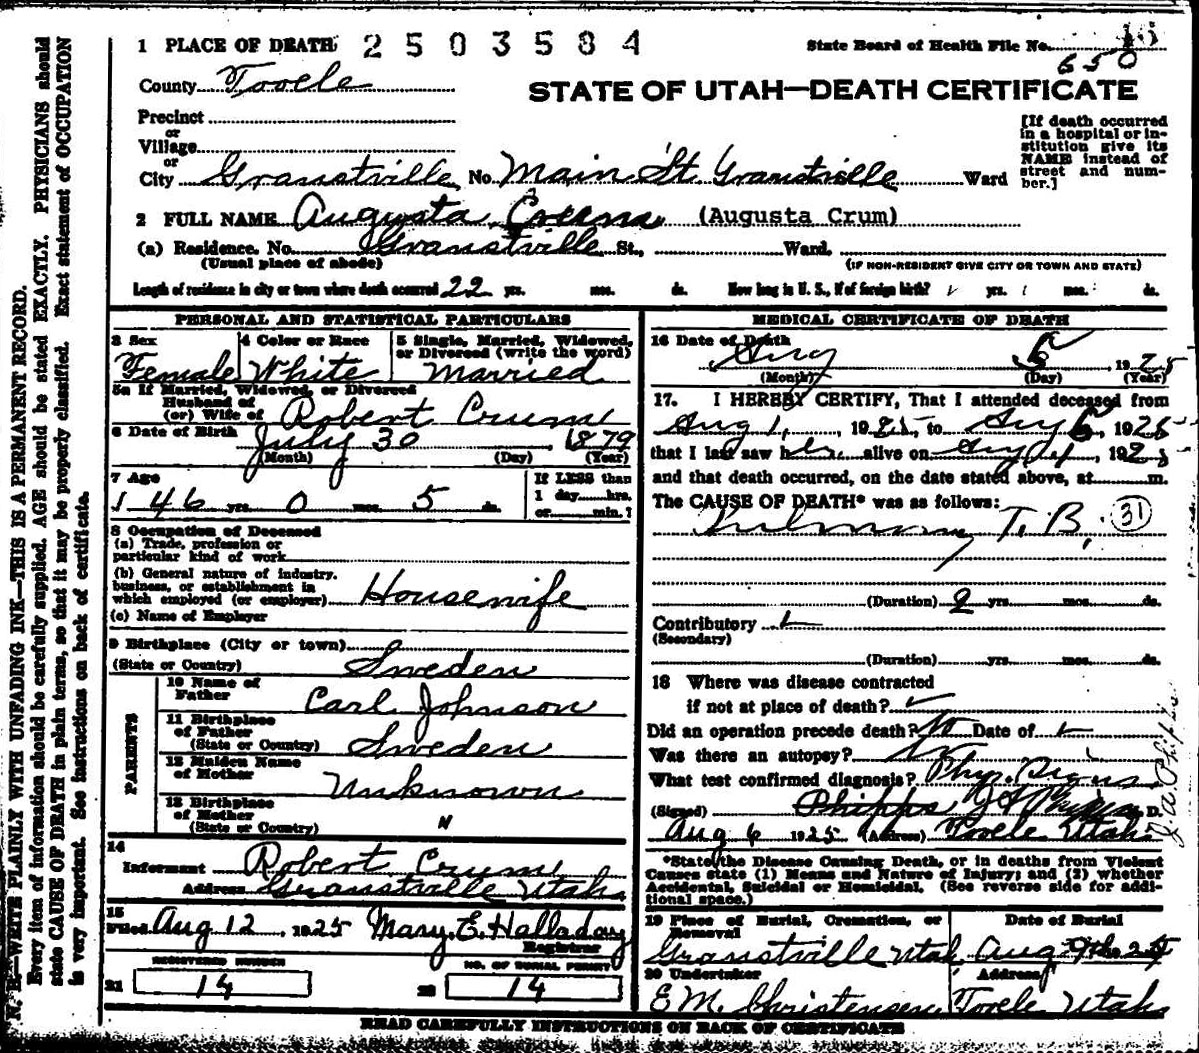 1 PLACE OF DEATH 2503584
State Board of Health File No.
650
County Tooele
STATE OF UTAH—DEATH CERTIFICATE
Precinct
or
Village
or
City Granstville No. Main St. Granstville Ward
[If death occurred in a hospital or institution give its NAME instead of street and number.]
2 FULL NAME Augusta Crum (Augusta Crum)
(a) Residence. No. Granstville St., Ward.
(Usual place of abode)
(IF NON-RESIDENT GIVE CITY OR TOWN AND STATE)
Length of residence in city or town where death occurred 22 yrs. mos. ds. How long in U. S., if of foreign birth? yrs. mos. ds.
PERSONAL AND STATISTICAL PARTICULARS
3 Sex
Female
4 Color or Race
White
5 Single, Married, Widowed, or Divorced (write the word)
Married
5a If Married, Widowed, or Divorced
Husband of
(or) Wife of Robert Crum
6 Date of Birth July 30 1879
(Month) (Day) (Year)
7 Age
46 yrs. 0 mos. 5 ds.
If LESS than
1 day hrs.
or min.?
8 Occupation of Deceased
(a) Trade, profession or
particular kind of work
(b) General nature of industry,
business, or establishment in
which employed (or employer) Housewife
(c) Name of Employer
9 Birthplace (City or town)
(State or Country) Sweden
PARENTS
10 Name of
Father Carl Johnson
11 Birthplace
of Father
(State or Country) Sweden
12 Maiden Name
of Mother Unknown
13 Birthplace
of Mother
(State or Country) "
14
Informant Robert Crum
Address Granstville Utah
15
Filed Aug 12, 1925 Mary E. Halladay
Registrar
REGISTERED NUMBER
21 14
NO. OF BURIAL PERMIT
22 14
MEDICAL CERTIFICATE OF DEATH
16 Date of Death
Aug 5, 1925
(Month) (Day) (Year)
17. I HEREBY CERTIFY, That I attended deceased from
Aug 1, 1925, to Aug 5, 1925
that I last saw her alive on Aug 4, 192
and that death occurred, on the date stated above, at m.
The CAUSE OF DEATH* was as follows:
Pulmonary T. B. 31
(Duration) 2 yrs. mos. ds.
Contributory
(Secondary)
(Duration) yrs. mos. ds.
18 Where was disease contracted
if not at place of death?
Did an operation precede death? No Date of
Was there an autopsy? No
What test confirmed diagnosis? Phys. Signs
(Signed) Phipps J A Phipps M. D.
J. A. Phipps
Aug 6 1925 (Address) Tooele Utah
*State the Disease Causing Death, or in deaths from Violent
Causes state (1) Means and Nature of Injury; and (2) whether
Accidental, Suicidal or Homicidal. (See reverse side for additional space.)
19 Place of Burial, Cremation, or Removal
Granstville Utah
Date of Burial
Aug
20 Undertaker
E M. Christensen
Address
Tooele Utah
READ CAREFULLY INSTRUCTIONS ON BACK OF CERTIFICATE
N. B.—WRITE PLAINLY WITH UNFADING INK—THIS IS A PERMANENT RECORD.
Every item of information should be carefully supplied. AGE should be stated EXACTLY. PHYSICIANS should
state CAUSE OF DEATH in plain terms, so that it may be properly classified. Exact statement of OCCUPATION
is very important. See instructions on back of certificate.